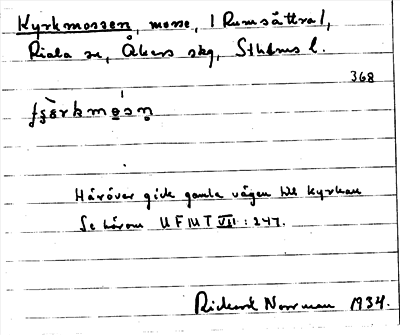 Kyrkmossen, mosse, (Rumsättra),
Riala sn, Åkers skg, Sthlms l.
368
Häröver gick gamla vägen till kyrkan
Se härom UFMT VII: 247.
Rickard Norrman 1934.